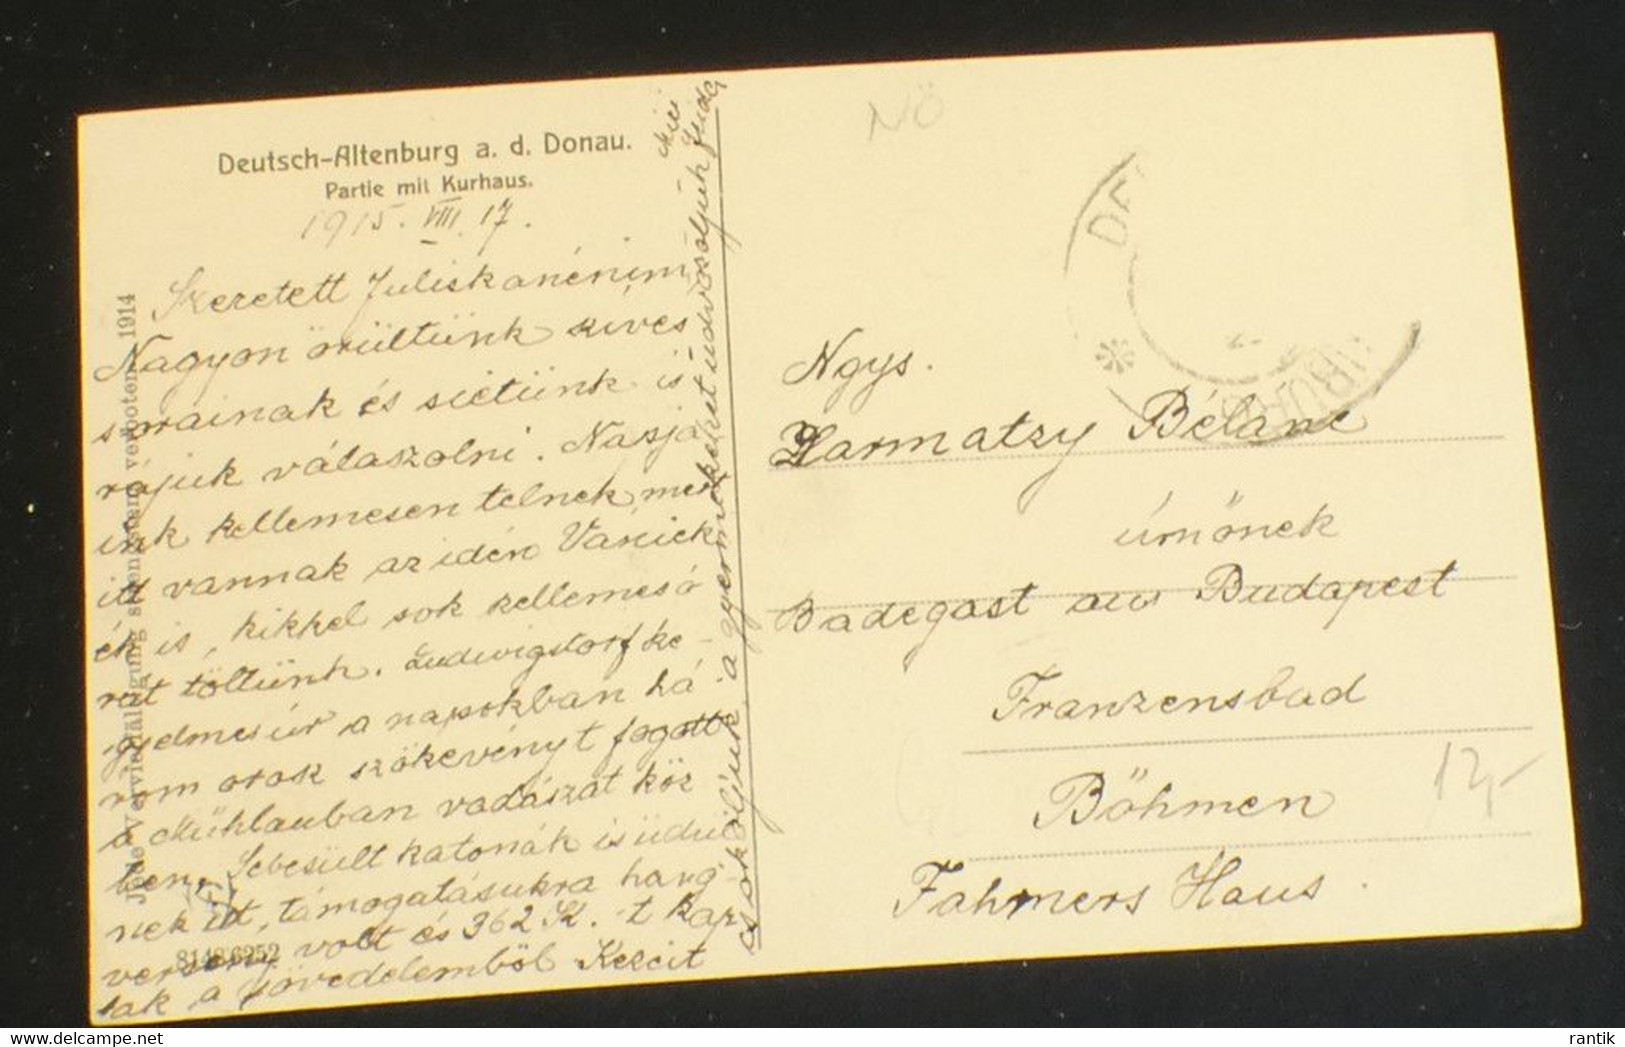 Deutsch-Altenburg a. d. Donau.
Partie mit Kurhaus.
1915. VIII. 17.
Szeretett Juliskanéném
Nagyon örültünk szives
sorainak és sietünk is
rájuk válaszolni. Napja
ink kellemesen telnek mert
itt vannak az idén
ék is, kikkel sok kellemes ó
rát töltünk. Ludwigstorf ke
gyelmes úr a napokban há
rom orosz szökevényt fogott
a Mühlauban vadászat köz
ben. Sebesült katonák is üdül
nek itt, támogatásukra hang
verseny volt és 362 K.-t kap
tak a jövedelemből Kezeit
csókoljuk, a gyermekeket üdvözöljük
Mici
Jede Vervielfältigung strengstens verboten. 1914
81486252
NÖ
Ngys.
Harmatzy Béláné
úrnőnek
Badegast aus Budapest
Franzensbad
Böhmen
12,-
Fahmers Haus.
rantik